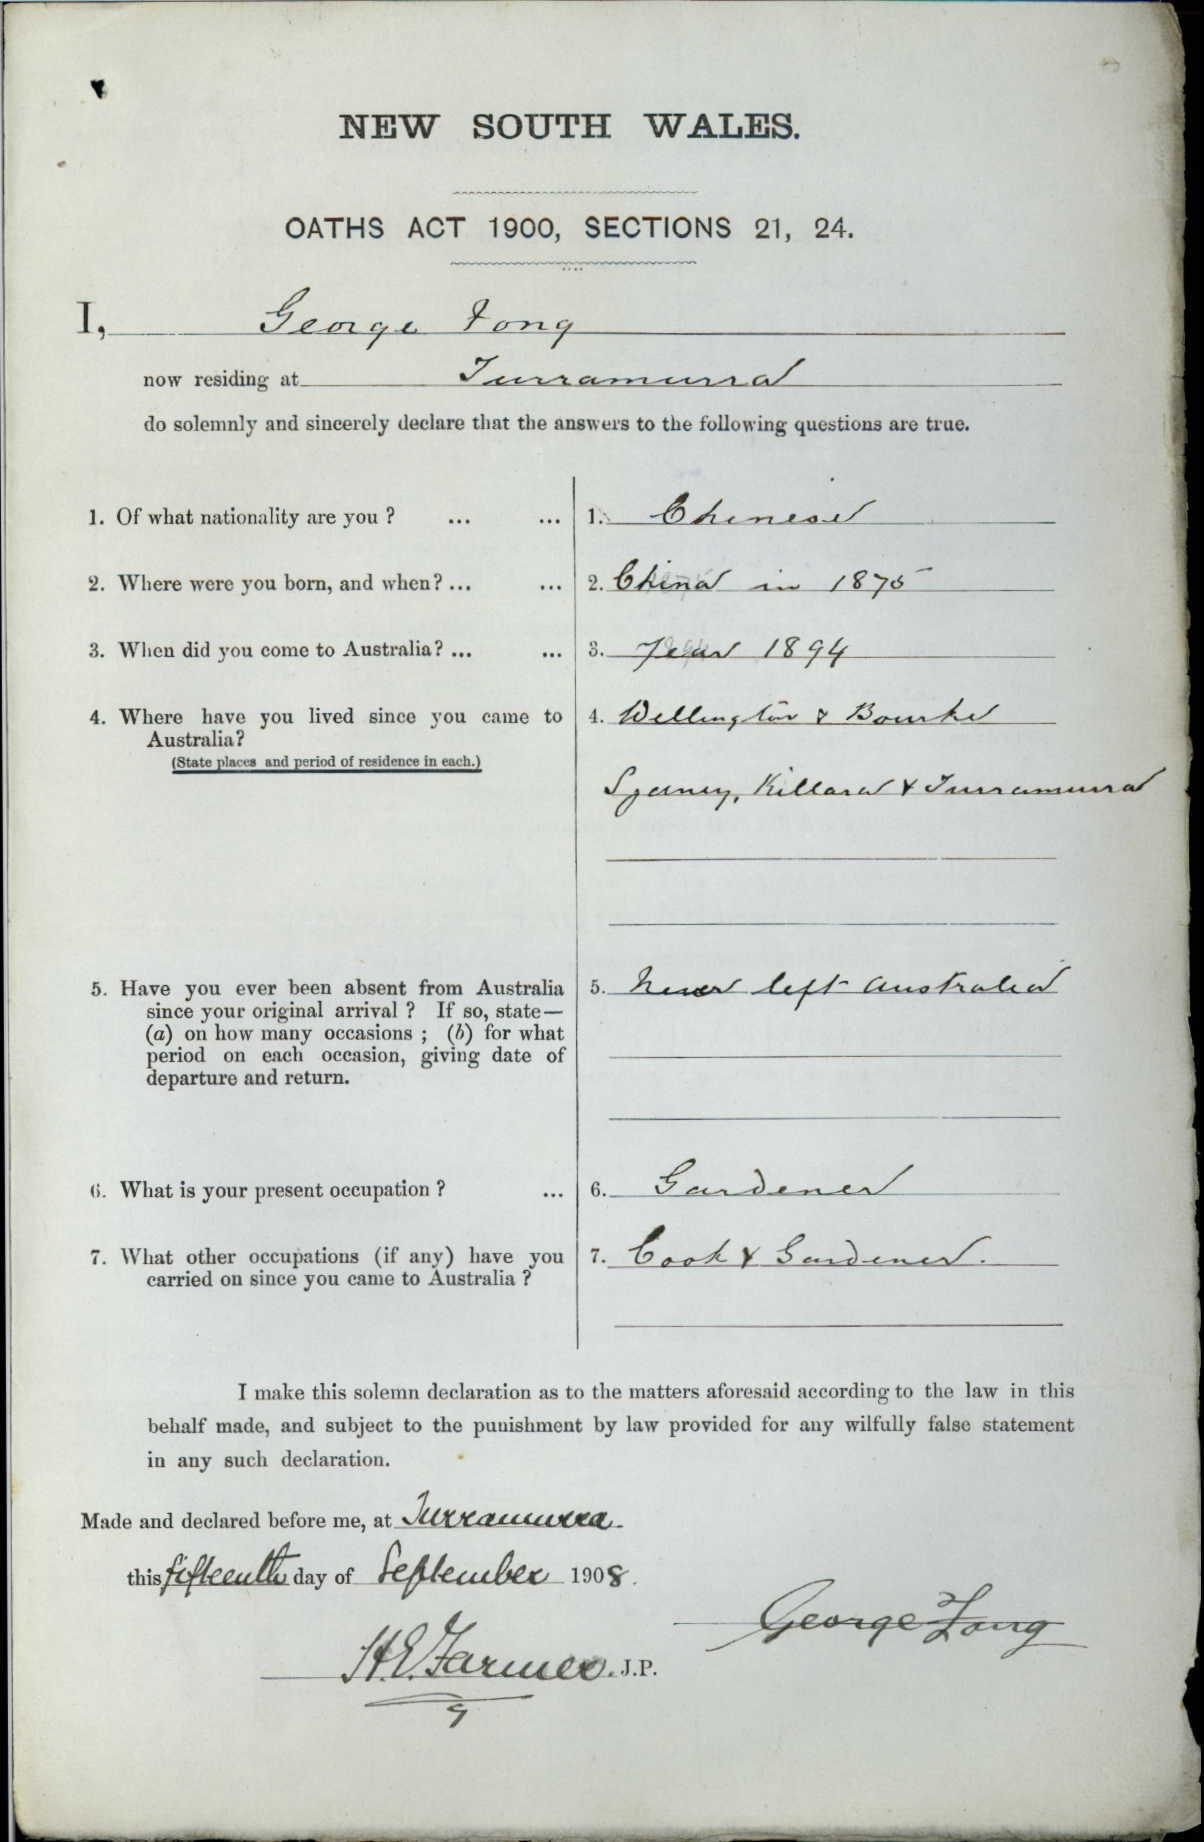 NEW SOUTH WALES.
OATHS ACT 1900, SECTIONS 21, 24.
I, George Fong
now residing at Turramurra
do solemnly and sincerely declare that the answers to the following questions are true.
1. Of what nationality are you ? ... ... 1. Chinese
2. Where were you born, and when? ... ... 2. China in 1875
3. When did you come to Australia? ... ... 3. Year 1894
4. Where have you lived since you came to 4. Wellington & Bourke
Australia?
(State places and period of residence in each.)
Sydney, Killara & Turramurra
5. Have you ever been absent from Australia 5. Never left Australia
since your original arrival ? If so, state—
(a) on how many occasions ; (b) for what
period on each occasion, giving date of
departure and return.
6. What is your present occupation ? ... 6. Gardener
7. What other occupations (if any) have you 7. Cook & Gardener.
carried on since you came to Australia ?
I make this solemn declaration as to the matters aforesaid according to the law in this
behalf made, and subject to the punishment by law provided for any wilfully false statement
in any such declaration.
Made and declared before me, at Turramurra
this fifteenth day of September 1908.
George Fong
H.E. Farmer. J.P.